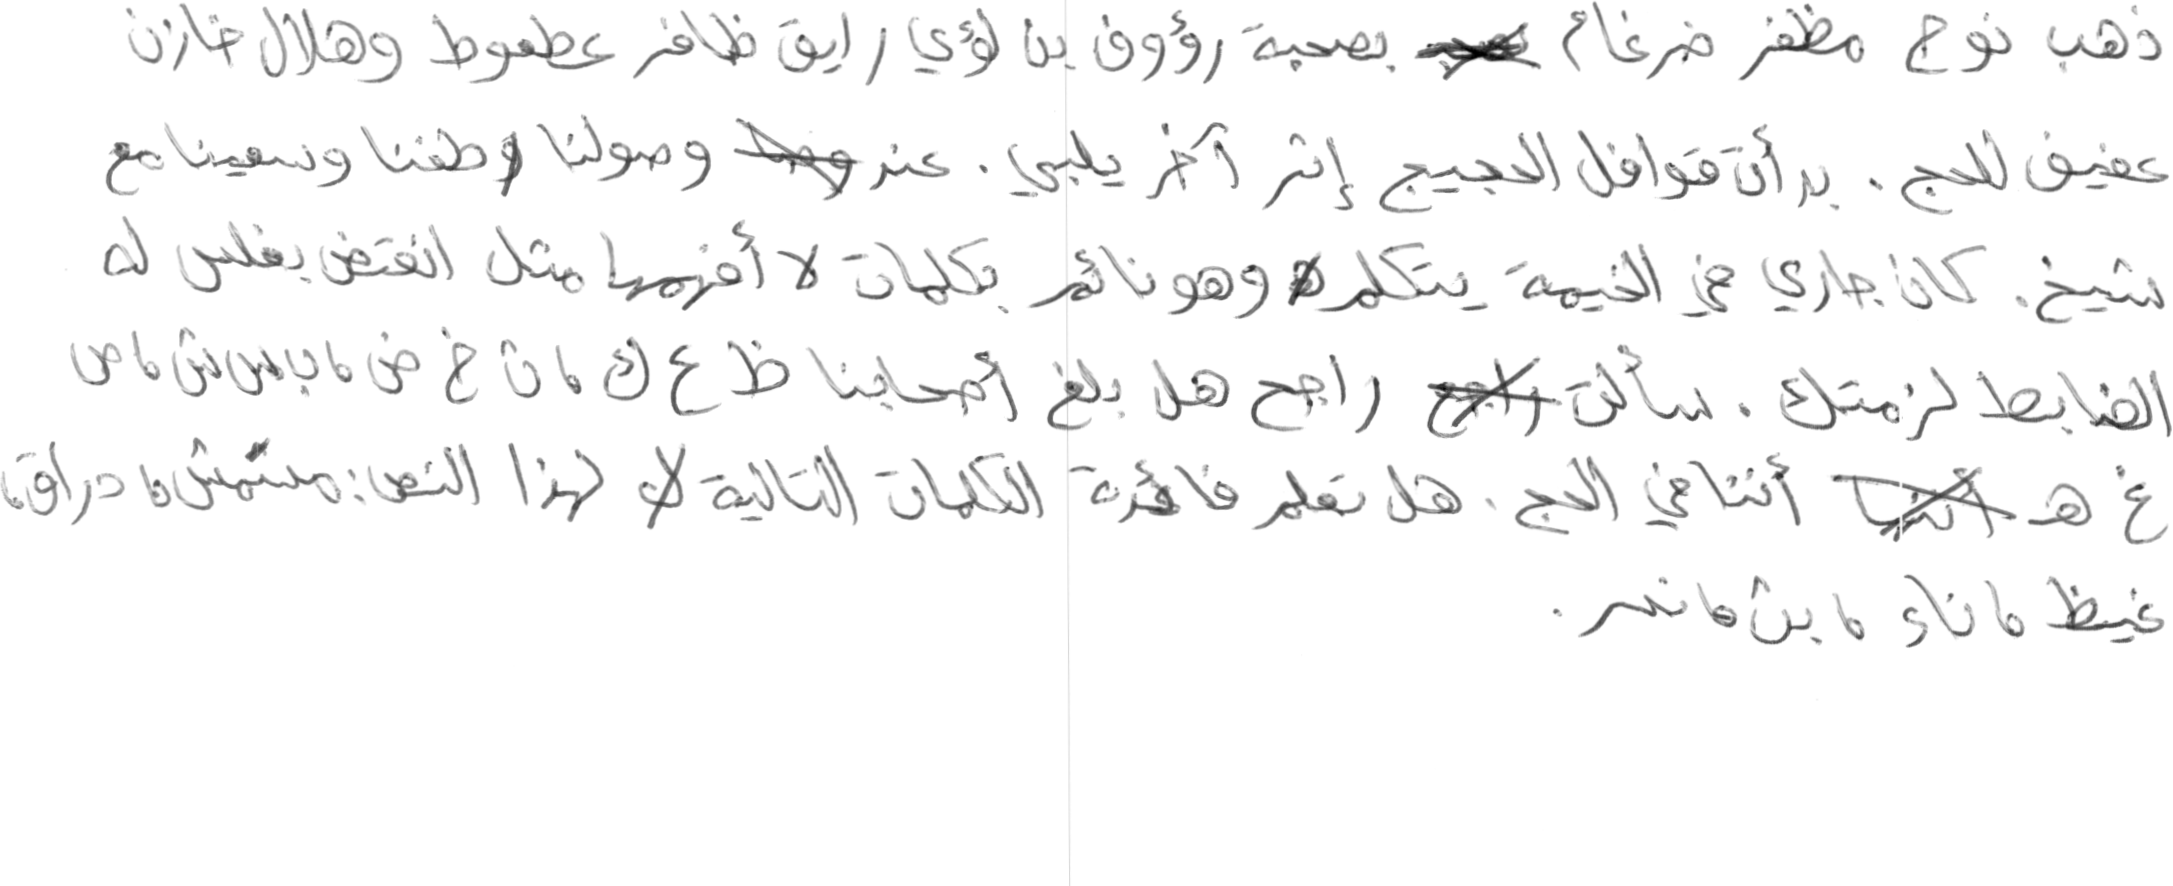 ذهب نوح مظفر ضرغام بصحبة رؤوف بن لؤي رايق ظافر عطعوط وهلال خازن
عفيف للحج . بدأت قوافل الحجيج إثر آخر يلبي . عند وصولنا وطفنا وسعينا مع
شيخ . كان جاري في الخيمة يتكلم وهو نائم بكلمات لا أفهمها مثل انقض بغلس له
الضابط لزمتك . سألت راجح هل بلغ أصحابنا ظ ع ك ، ن خ ض ، ب س ش ، ص
غ هـ أننا في الحج . هل تعلم فائدة الكلمات التالية لهذا النص : مشمش ، دراق ،
غيظ ، ناء ، بث ، نسر .